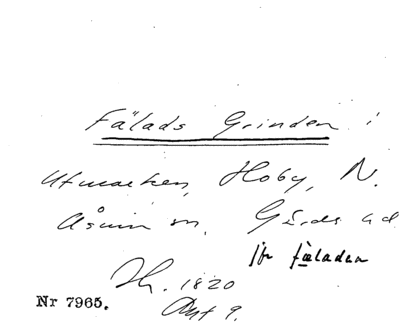 Fälads Grinden i
utmarken, Hoby, N.
Åsum sn. Gärds hd
jfr fäladen
Sk. 1820
Akt 9.
Nr 7965.